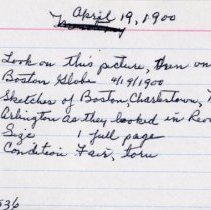 April 19, 1900
Look on this picture, then on
Boston Globe 4/19/1900
Sketches of Boston, Charlestown,
Arlington as they looked in Rev
Size 1 full page
Condition Fair, torn
536